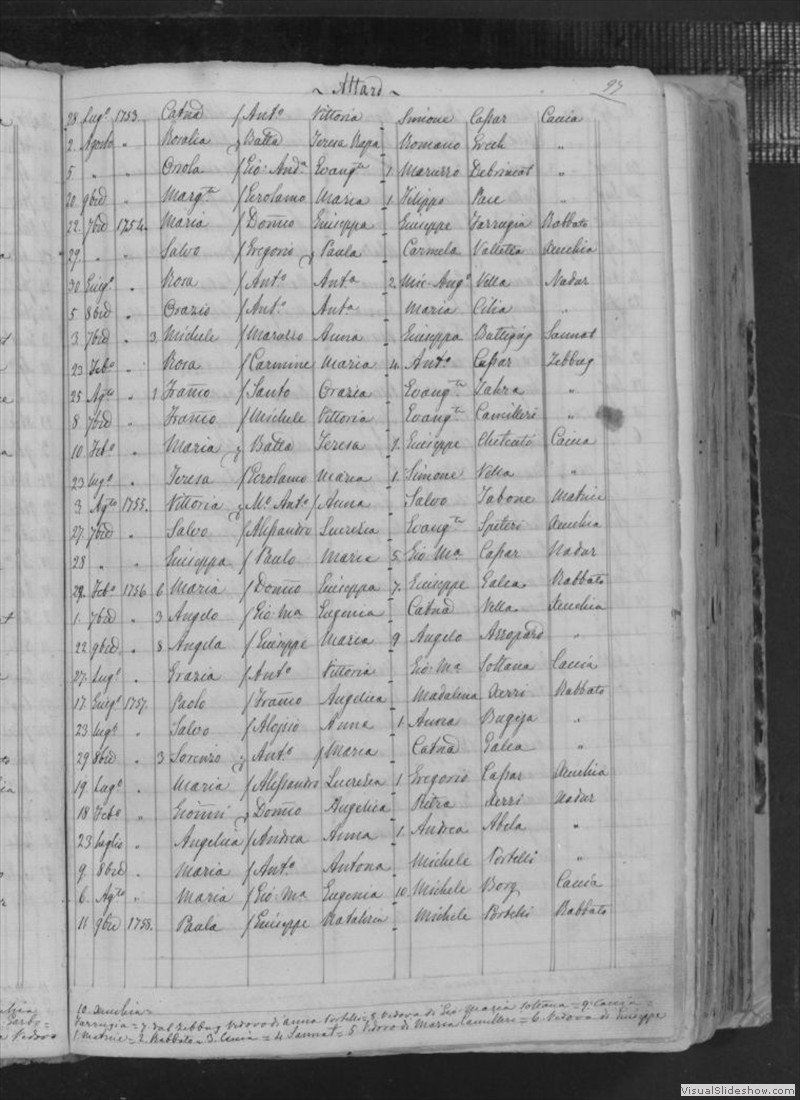 ~ Attard ~ 97
28 Lug.º 1753. Catnã f Ant.º Vittoria Simione Caſsar Caccia
2. Agosto " Rosalia Batta Teresa Rapa Romano Grech "
5 " " Orsola f Gio: And.ª Evang.ta 1. Marurzo Debrincat "
20 9bre " Marg.ta f Gerolamo Maria 1. Filippo Pace "
22. 7bre 1754. Maria f Dom̃co Giuseppa Giuseppe Farrugia Rabbato
29. " " Salvo f Gregorio Paula Carmela Valletta Xeuchia
30 Giug.º " Rosa f Ant.º Ant.a 2. Mic-Ang.º Vella Nadur
5 8bre " Orazio f Ant.º Ant.a Maria Cilia "
3. 7bre " 3. Michele f Marurzo Anna Giuseppa Buttigieg Sannat
23 Feb.º " Rosa f Carmine Maria 4. Ant.º Caſsar Zebbug
25 Ag.to " 1 Franco f Santo Grazia Evang.ta Zahra "
8 7bre " Franco f Michele Vittoria Evang.ta Camilleri "
10 Feb.º " Maria Batta Teresa Giuseppe Chetcuti Caccia
23 Lug.º " Teresa f Gerolamo Maria 1. Simone Vella "
3 Ag.to 1755. Vittoria M.º Ant.º f Anna Salvo Tabone Matrice
27. 7bre " Salvo f Aleſsandro Lucrezia Evang.ta Spiteri Xeuchia
28 " " Giuseppa f Paulo Maria 5. Gio Mª Caſsar Nadur
Feb.º 1756 6 Maria f Dom̃co Giuseppa 7. Giuseppe Galea Rabbato
1. 7bre " 3 Angelo f Gio: Mª Eugenia Catnã Vella Xeuchia
22 9bre " 8 Angela f Giuseppe Maria 9 Angelo Azzopardo "
27. Lug.º " Grazia f Ant.º Vittoria Gio: Mª Soltana Caccia
17 Giug.º 1757. Paolo f Franco Angelica Madalena Xerri Rabbato
23 Lug.º " Salvo f Aloisio Anna 1. Anna Bugeja "
29 8bre " 3 Lorenzo Ant.º f Maria Catnã Galea "
19 Lug.º " Maria f Aleſsandro Lucrezia 1 Gregorio Caſsar Xeuchia
18 Feb.º " Giom̃ni Dom̃co Angelica Pietra Xerri Nadur
23 Luglio " Angelica f Andrea Anna 1. Andrea Abela "
9. 8bre " Maria f Ant.º Antona Michele Portelli "
6. Ag.to " Maria f Gio: Mª Eugenia 10 Michele Borg Caccia
11 9bre 1758. Paula f Giuseppe Natalizia Michele Portelli Rabbato
10. Xeuchia =
Farrugia = 7. dal Zebbug Vedovo di Anna Portelli = 8 Vedova di Gio Maria Soltana = 9. Caccia =
1. Matrice = 2. Rabbato = 3. Caccia = 4. Sannat = 5. Vedovo di Maria Camilleri = 6. Vedova di Giuseppe
VisualSlideshow.com